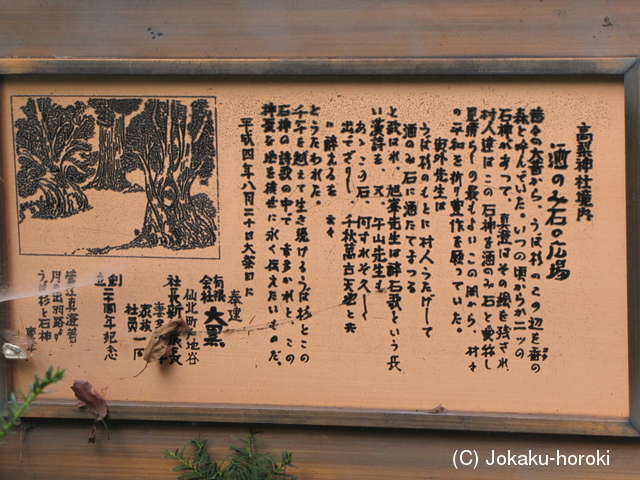 高梨神社境内
酒のみ石の広場
昔々の大昔から、うば杉のこの辺を番の
森と呼んでいた。いつの頃からか二ッの
石神があって、真澄はその絵を残され
村人達はこの石神を酒のみ石と愛称し
見晴らしの最もよいこの岡から、村々
の平和を祈り豊作を願っていた。
野外先生は
うば杉のもとに村人うたげして
酒のみ石に酒たてまつる
と歌はれ、旭峯先生は酔石歌という長
い漢詩を、又、午山先生も
あゝこの石、何すれぞ久しく
出でざりし、千秋萬古天地と共
に酔えるを 云々
とうたわれた。
千年を越えて生き続けるうば杉とこの
石神の詩歌の中で、幸多かれと、この
神愛な地を後世に永く伝えたいものだ。
平成四年八月二十日大祭日に
奉建
有限会社 大黒
仙北町 地谷
社長 新 長
妻 多
家族
社員 一同
創立二十周年記念
菅江真澄著
月の出羽路が
うば杉と石神
(C) Jokaku-horoki